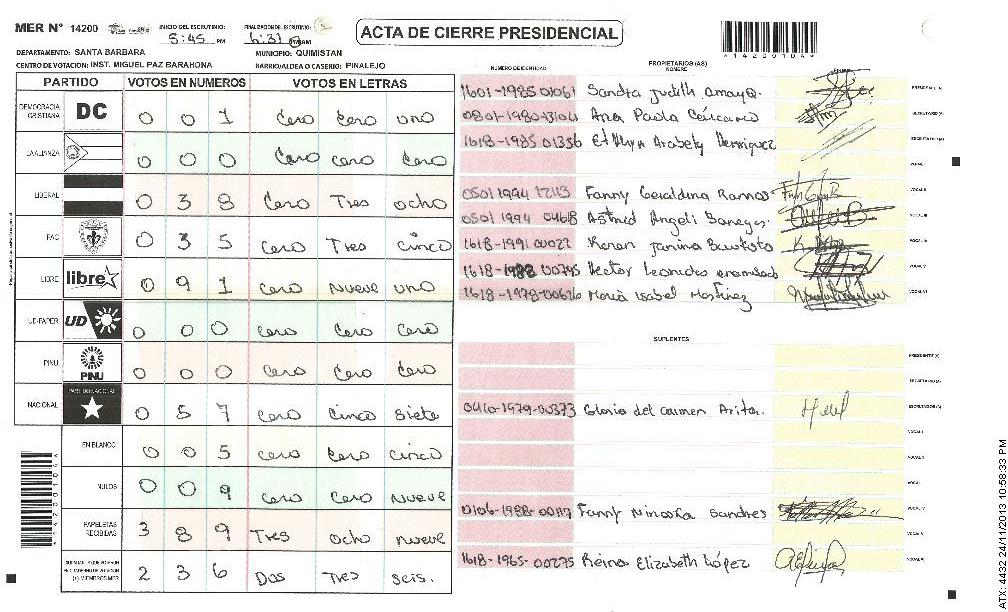 MER N° 14200 INICIO DEL ESCRUTINIO: 5:45 PM FINALIZACION DEL ESCRUTINIO: 6:31 AM
ACTA DE CIERRE PRESIDENCIAL
*14200104*
DEPARTAMENTO: SANTA BARBARA MUNICIPIO: QUIMISTAN
CENTRO DE VOTACION: INST. MIGUEL PAZ BARAHONA BARRIO/ALDEA O CASERIO: PINALEJO
PARTIDO VOTOS EN NUMEROS VOTOS EN LETRAS
DEMOCRACIA CRISTIANA DC 0 0 1 Cero Cero uno
LA ALIANZA 0 0 0 Cero cero Cero
LIBERAL 0 3 8 Cero Tres ocho
PAC 0 3 5 cero Tres cinco
LIBRE libre 0 9 1 Cero nueve uno
UD-FAPER UD 0 0 0 cero Cero Cero
PINU PINU 0 0 0 Cero Cero Cero
NACIONAL PARTIDO NACIONAL 0 5 7 cero cinco siete
EN BLANCO 0 0 5 cero Cero cinco
NULOS 0 0 9 Cero Cero nueve
PAPELETAS RECIBIDAS 3 8 9 Tres ocho nueve
2 3 6 Dos Tres seis.
NUMERO DE IDENTIDAD PROPIETARIOS (AS) NOMBRE FIRMA
1601-1985 01061 Sandra Judith Amaya. PRESIDENTE (A)
Ana Paola SECRETARIO (A)
1618-1985 01356 Arabely Henriquez ESCRUTADOR (A)
VOCAL I
0501 1994 Fanny Geraldina Ramos VOCAL II
0501 1994 0468 Astrid Angeli Banegas. VOCAL III
1618-1991 00022 Keren Janina Bautista VOCAL IV
Hector Leonidas VOCAL V
1618-1978-00626 Maria Isabel Martinez VOCAL VI
SUPLENTES
PRESIDENTE (A)
SECRETARIO (A)
0410-1979-00373 Gloria del Carmen Arita. ESCRUTADOR (A)
VOCAL I
VOCAL II
VOCAL III
0106-1988-00117 Fanny VOCAL IV
VOCAL V
1618-1965-00235 Reina Elizabeth López VOCAL VI
ATX: 4432 24/11/2013 10:58:33 PM